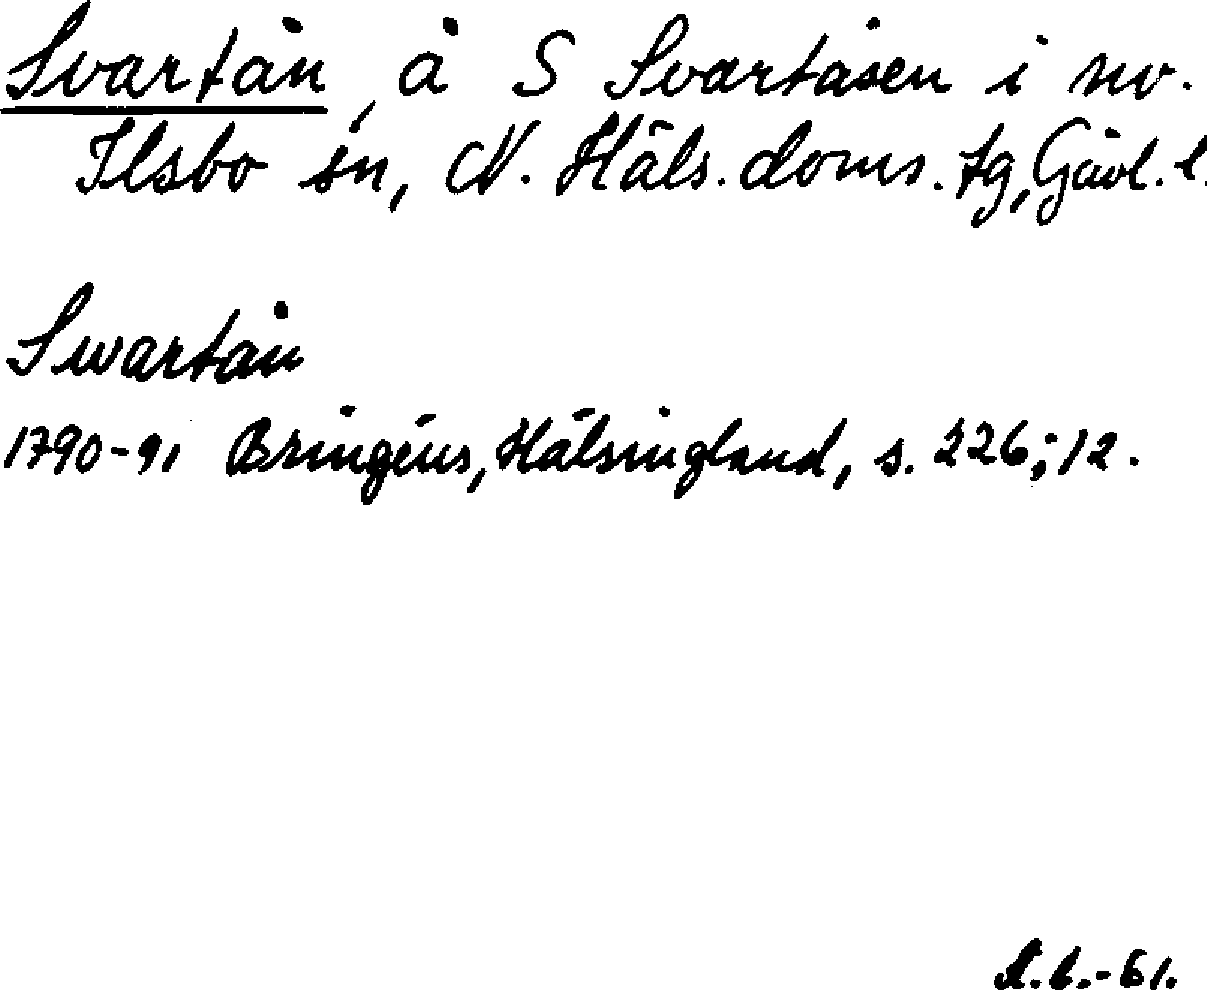 Svartån, å S Svartåsen i nv.
Ilsbo sn, N. Häls. doms. tg, Gävl. l.
Swartån
1790-91 Bringéus, Hälsingland, s. 226; 12.
-61.